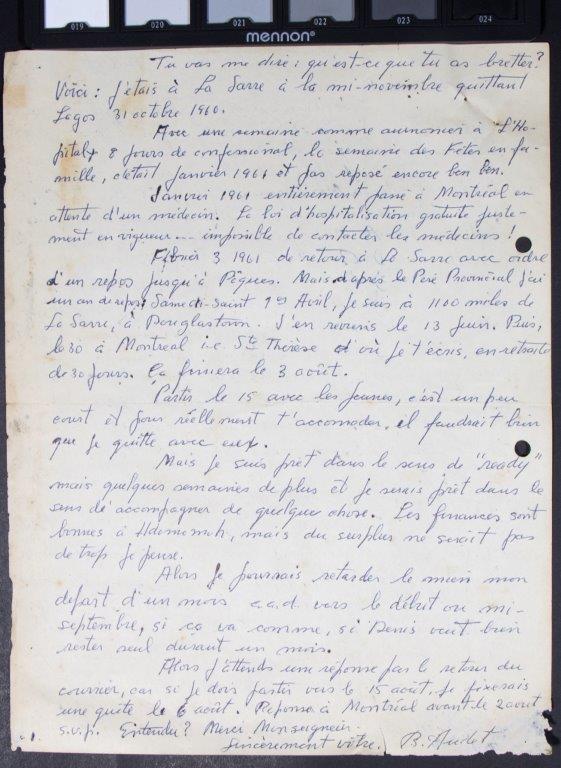 019 020 021 022 023 024
mennon®
Tu vas me dire : qu'est-ce que tu as bretter?
Voici : j'étais à La Sarre à la mi-novembre quittant
Lagos 31 octobre 1960.
Avec une semaine comme aumonier à L'Ho-
pital, 8 jours de confessional, la semaine des Fêtes en fa-
mille, c'était Janvier 1961 et pas reposé encore ben ben.
Janvier 1961 entièrement passé à Montréal en
attente d'un médecin. La loi d'hospitalisation gratuite juste-
ment en vigueur... impossible de contacter les médecins!
Février 3, 1961 de retour à La Sarre avec ordre
d'un repos jusqu'à Pâques. Mais d'après le Père Provincial j'ai
un an de repos. Samedi-Saint 1er Avril, je suis à 1100 milles de
La Sarre, à Douglastown. J'en reviens le 13 juin. Puis,
le 30 à Montréal i.e. Ste Thérèse d'où je t'écris, en retraite
de 30 jours. Ça finira le 3 août.
Partir le 15 avec les jeunes, c'est un peu
court et pour réellement t'accomoder, il faudrait bien
que je quitte avec eux.
Mais je suis prêt dans le sens de "ready"
mais quelques semaines de plus et je serais prêt dans le
sens de accompagner de quelque chose. Les finances sont
bonnes à mais du surplus ne serait pas
de trop je pense.
Alors je pourrais retarder le mien mon
départ d'un mois c.a.d. vers le début ou mi-
septembre, si ça va comme, si Denis veut bien
rester seul durant un mois.
Alors j'attends une réponse par le retour du
courrier, car si je dois partir vers le 15 août, je fixerais
une quête le 6 août. Réponse à Montréal avant le 2 août
s.v.p. Entendu? Merci Monseigneur.
Sincèrement vôtre. B. Audet